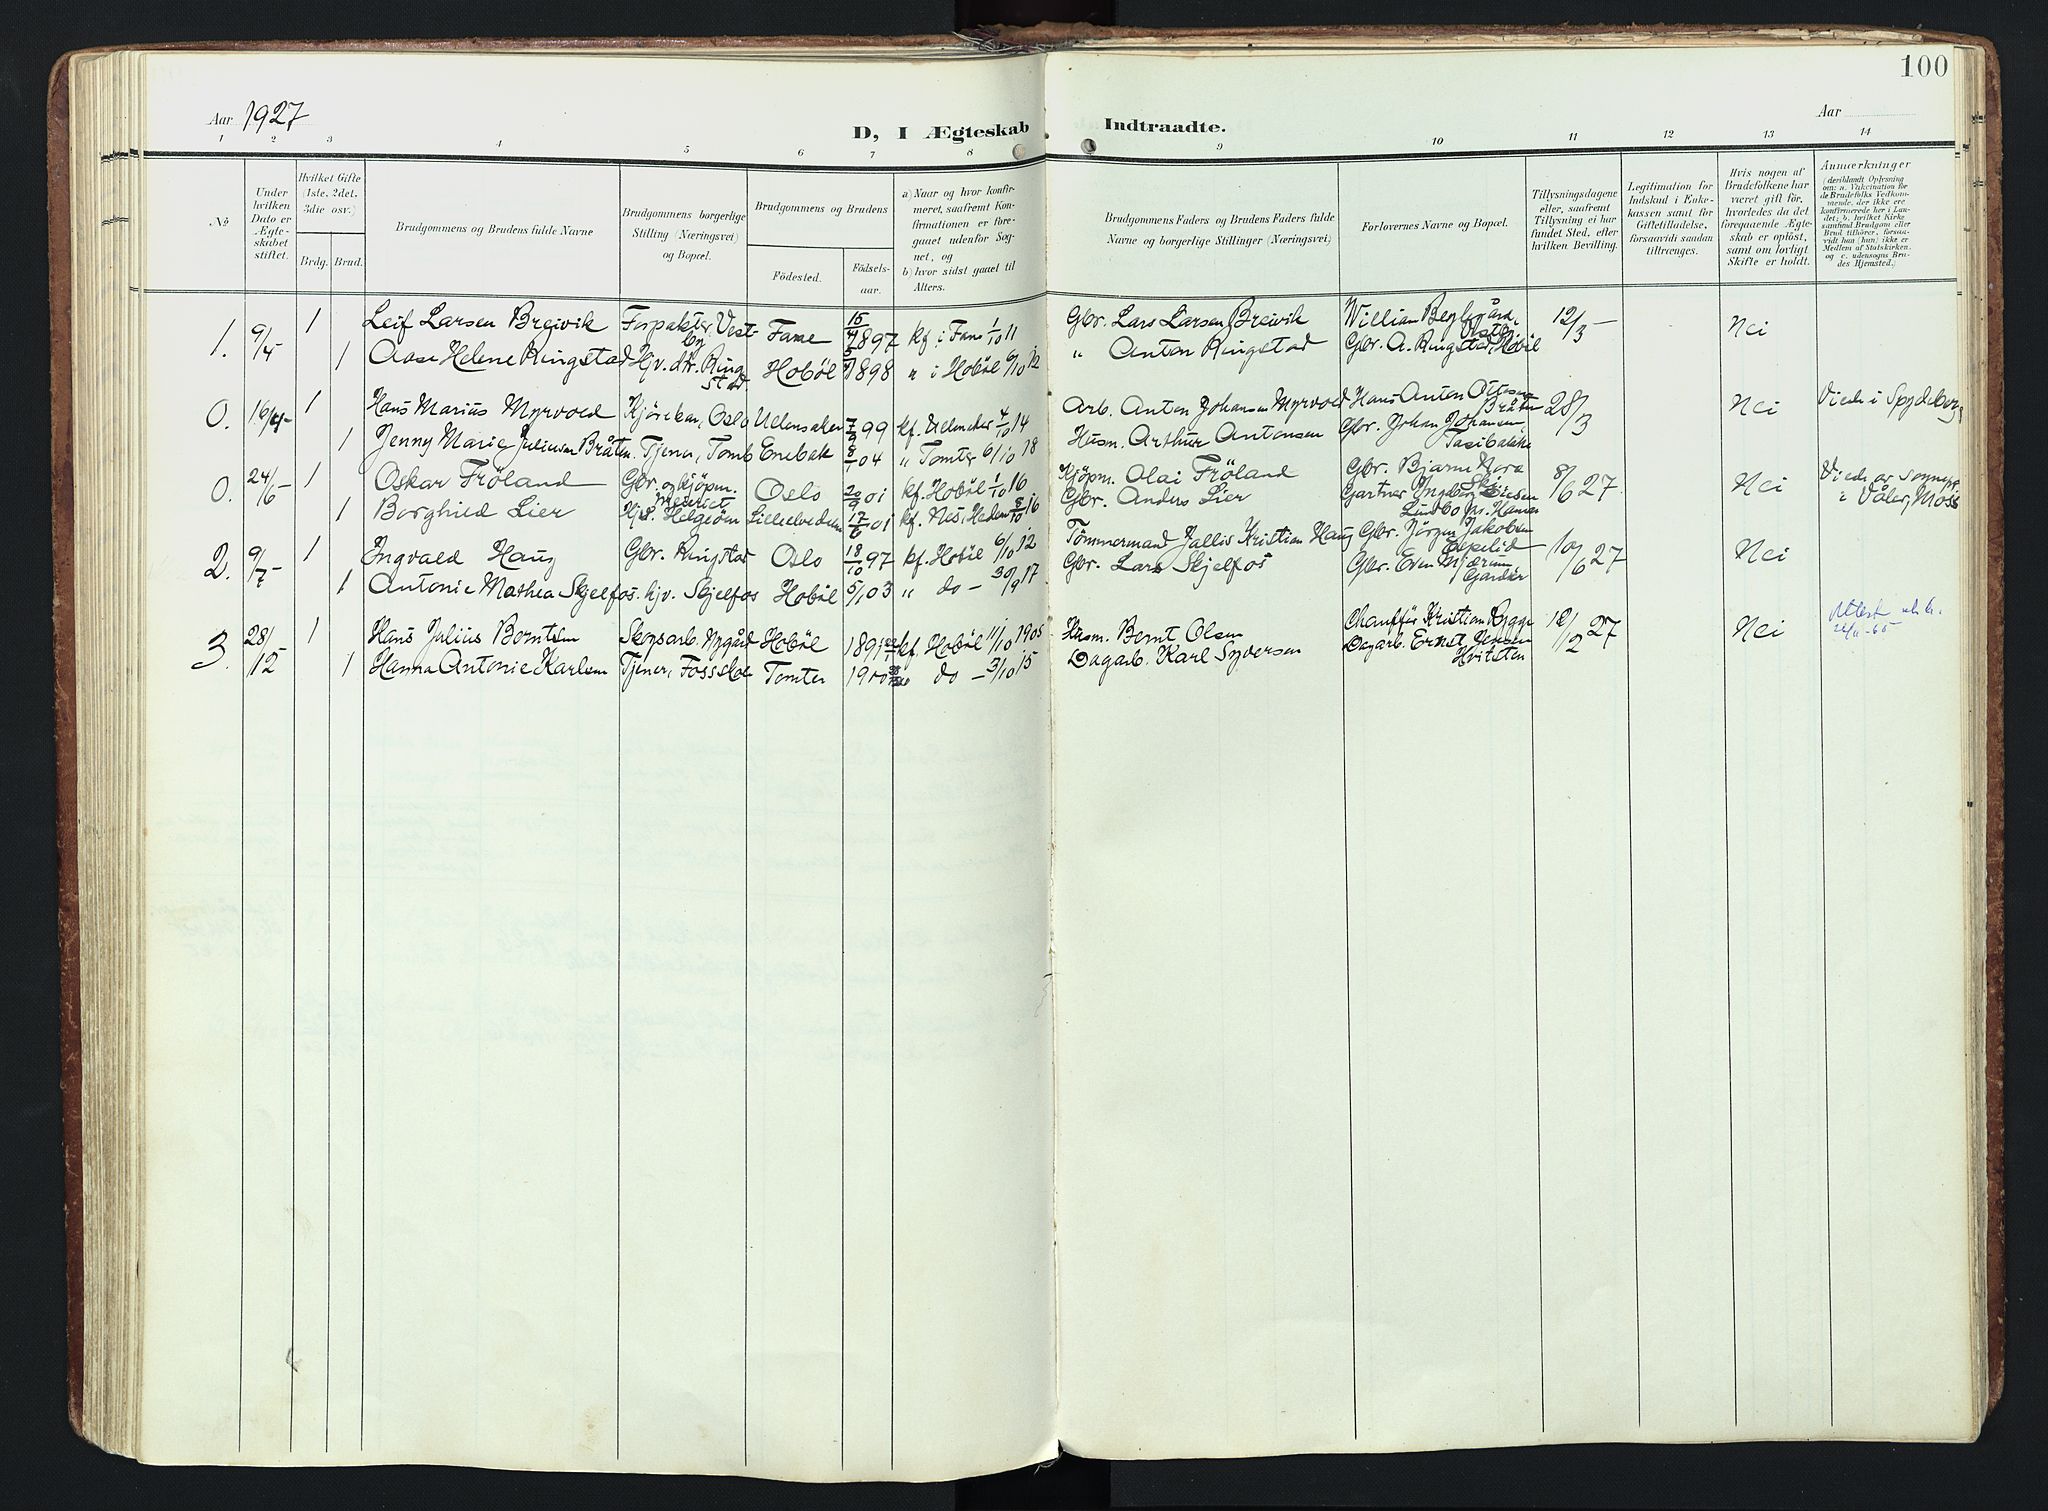 100
Aar 1927
D, I Ægteskab Indtraadte.
Aar
1 2 3 4 5 6 7 8 9 10 11 12 13 14
№
Under hvilken Dato er Ægteskabet stiftet.
Hvilket Gifte (1ste, 2det, 3die osv.)
Brdg. Brud.
Brudgommens og Brudens fulde Navne
Brudgommens borgerlige Stilling (Næringsvei) og Bopæl.
Brudgommens og Brudens
Födested. Födselsaar.
a) Naar og hvor konfirmeret, saafremt Konfirmationen er foregaaet udenfor Sognet, og
b) hvor sidst gaaet til Alters.
Brudgommens Faders og Brudens Faders fulde Navne og borgerlige Stillinger (Næringsvei)
Forlovernes Navne og Bopæl.
Tillysningsdagene eller, saafremt Tillysning ei har fundet Sted, efter hvilken Bevilling.
Legitimation for Indskud i Enkekassen samt for Giftetilladelse, forsaavidt saadan tiltrænges.
Hvis nogen af Brudefolkene har været gift før, hvorledes da det foregaaende Ægteskab er opløst, samt om lovligt Skifte er holdt.
Anmærkninger
(deriblandt Oplysning om: a. Vaccination for de Brudefolks Vedkommende, der ikke ere konfirmerede her i Landet; b. hvilket Kirkesamfund Brudgom eller Brud tilhører, forsaavidt han (hun) ikke er Medlem af Statskirken, og c. udensogns Brudes Hjemsted.)
1. 9/4 - 1 Leif Larsen Breivik Forpakter, Vestby Fane 15/4 1897 kf. i Fane 1/10 11 Gbr. Lars Larsen Breivik 12/3 - Nei
1 Aase Helene Ringstad Hjv. dtr. Ringstad Hobøl 1898 " i Hobøl 6/10 12 " Anton Ringstad Gbr. A. Ringstad, Hobøl
0. 16/4 - 1 Hans Marius Myrvold Kjørekar, Oslo Ullensaker 99 kf. 4/10 14 Arb. Anton Johansen Myrvold Hans Anton Bråten 28/3 Nei Viede i Spydeberg
1 Jenny Marie Juliussen Bråten. Tjener, Tomb Enebak 04 " Tomter 6/10 18 Husm. Arthur Antonsen Gbr. Johan Johansen,
0. 24/6 - 1 Oskar Frøland Gbr. og kjøpm. Oslo 20/9 01 kf. Hobøl 1/10 16 Kjøpm. Olai Frøland Gbr. Bjarne Nora Ski 8/6 27 Nei Viede av sognepr. i Våler, Moss
1 Borghild Lier Helgeøen 17/6 01 kf. Nes, Hedem. 8/10 16 Gbr. Anders Lier Gartner Lundbo pr. Hamar
2. 9/7 - 1 Ingvald Haug Gbr. Ringstad Oslo 18/10 97 kf. Hobøl 6/10 12 Tømmermand Jallis Kristian Haug Gbr. Jørgen Jakobsen Espelid 10/6 27 Nei
1 Antonie Mathea Skjelfos. hjv. Skjelfos Hobøl 5/1 03 " do - 30/9 17 Gbr. Lars Skjelfos Gbr. Even Mjærum Garder
3. 28/12 1 Hans Julius Berntsen Skogsarb. Nygård Hobøl 1891 kf. Hobøl 11/10 1905 Husm. Bernt Olsen Chauffør Kristian Rygge 12/12 27 Nei Attest 65
1 Hanna Antonie Karlsen Tjener, Tomter 1900 " do - 3/10 15 Dagarb. Karl Syversen Dagarb. Ernst Jensen Hvitsten